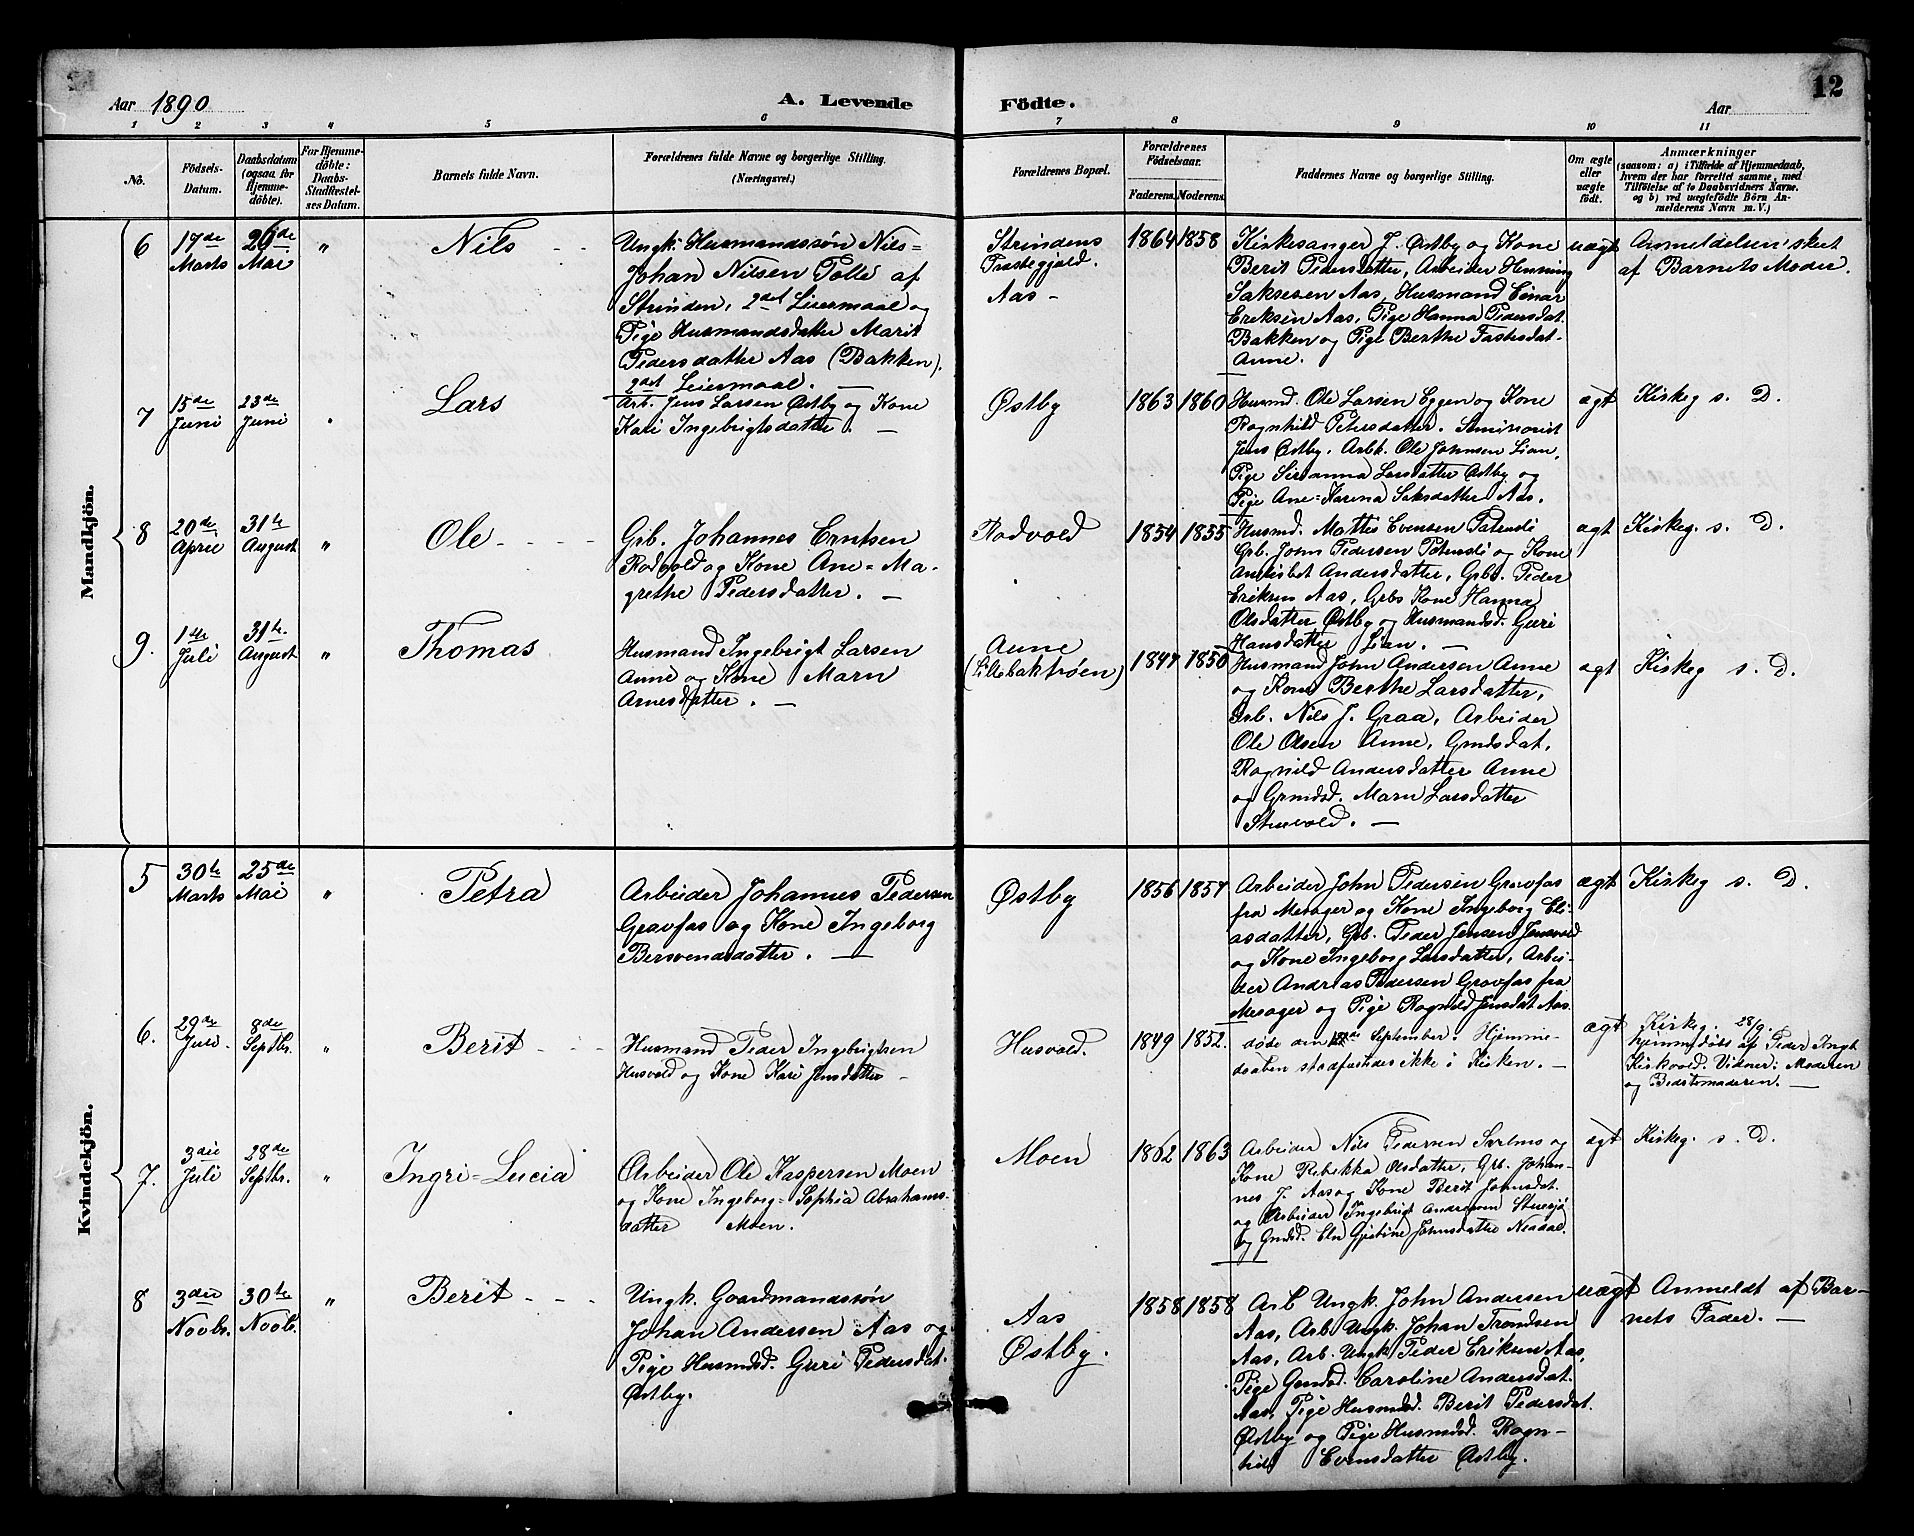 Aar 1890
A. Levende Födte.
Aar
12
1 2 3 4 5 6 7 8 9 10 11
No.
Födsels-Datum.
Daabsdatum (ogsaa for Hjemme-döbte).
For Hjemme-döbte: Daabs-Stadfæstel-ses Datum.
Barnets fulde Navn.
Forældrenes fulde Navne og borgerlige Stilling.
(Næringsvei.)
Forældrenes Bopæl.
Forældrenes Födselsaar.
Faderens. Moderens.
Faddernes Navne og borgerlige Stilling.
Om ægte eller uægte födt.
Anmærkninger
(saasom: a) i Tilfælde af Hjemmedaab,
hvem der har forrettet samme, med
Tilföielse af to Daabsvidners Navne.
og b) ved uægtefödte Börn An-
melderens Navn m. V.)
Mandkjön.
6
17de Marts
26de Mai
"
Nils
Ungk. Husmandssøn Nils=
Johan Nilsen Tolle af
Strinden, 2det Leiermaal og
Pige Husmandsdatter Marit
Pedersdatter Aas (Bakken).
2det Leiermaal. —
Strindens
Præstegjæld.
Aas -
1864 1858
Kirkesanger J. Østby og Kone
Berit Pedersdatter, Arbeider Henning
Saksesen Aas, Husmand Einar
Eriksen Aas, Pige Hanna Pedersdat.
Bakken og Pige Berthe Fastesdat-
Aune.
uægt
Anmeldelsen skeet
af Barnets Moder.
7
15de Juni
23de Juni
"
Lars
Arb. Jens Larsen Østby og Kone
Kari Ingebrigtsdatter. —
Østby
1863 1860
Husmd. Ole Larsen Eggen og Kone
Ragnhild Petersdatter. Seminarist
Jens Østby. Arbk. Ole Johnsen Lian,
Pige Sirianna Larsdatter Østby og
Pige Ane=Karina Saksdatter Aas.
ægt
Kirkeg s. D.
8
20de April
31te August
"
Ole
Grb. Johannes Erntsen
Rodvold og Kone Ane=Ma-
grethe Pedersdatter. —
Rodvold
1854 1855
Husmd. Mattis Evensen Patensli
Grb. John Pedersen Patensli og Kone
Anelisbet Andersdatter, Grb. Peder
Eriksen Aas, Grbs Kone Hanna
Olsdatter Østby og Husmandsd. Guri
Hansdatter Lian. —
ægt
Kirkeg. s. D.
9.
1ste Juli
31te August
"
Thomas
Husmand Ingebrigt Larsen
Aune og Kone Marn
Arnesdatter. —
Aune
(Lillebaktrøen)
1847 1850
Husmand John Andersen Aune
og Kone Berthe Larsdatter,
Grb. Nils J. Graa, Arbeider
Ole Olsen Aune, Gmdsdat.
Ragnild Andersdatter Aune
og Grmdsd. Marn Larsdatter
Stuevold. —
ægt
Kirkeg s. D.
Kvindekjön.
5
30te Marts
25de Mai
"
Petra
Arbeider Johannes Pedersen
Gravfas og Kone Ingeborg
Bersvendsdatter. —
Østby
1856 1857
Arbeider John Pedersen Gravfas
fra Merager og Kone Ingeborg Eli-
asdatter, Grb. Peder Jensen Jensvold
og Kone Ingeborg Larsdatter, Arbei-
der Andreas Pedersen Gravfas fra
Merager og Pige Ragnild Jensdat Aas.
ægt
Kirkeg s. D.
6.
29de Juli.
8de Septbr.
"
Berit
Husmand Peder Ingebrigtsen
Husvold og Kone Kari Jensdatter -
Husvold.
1849 1852.
døde den September. Hjemme-
daaben stadfæstedes ikke i Kirken. —
ægt
Kirkeg. 28/9.
hjemmedøbt af Peder Ingb.
Kirkvold. Vidner: Moderen
og Bedstemoderen. —
7.
3die Juli
28de Septbr.
"
Ingri=Lucia
Arbeider Ole Kaspersen Moen
og Kone Ingeborg=Sophia Abrahams-
datter Moen.
Moen
1862 1863
Arbeider Nils Pedersen og
Kone Rebekka Olsdatter, Grb. Johan-
nes J. Aas og Kone Berit Johnsdat.
og Arbeider Ingebrigt Andersen Stuesjø
og Gmdsd. Eln Gjertine Johnsdatter Neadal.
ægt
Kirkeg. s. D.
8
3die Novbr.
30te Novb.
"
Berit
Ungk. Gaardmandssøn
Johan Andersen Aas og
Pige Husmdsd. Guri Pedersdat.
Østby.
Aas
Østby.
1858 1858
Arb Ungk. John Andersen
Aas, Arb Ungk. Johan Trondsen
Aas, Arb. Ungk Peder Eriksen Aas,
Pige Gmdsd. Caroline Andersdat.
Aas, Pige Husmdsd. Berit Pedersdat.
Østby og Pige Husmdsd. Ragn-
hild Evensdatter Østby.
uægt
Anmeldt af Bar-
nets Fader. —